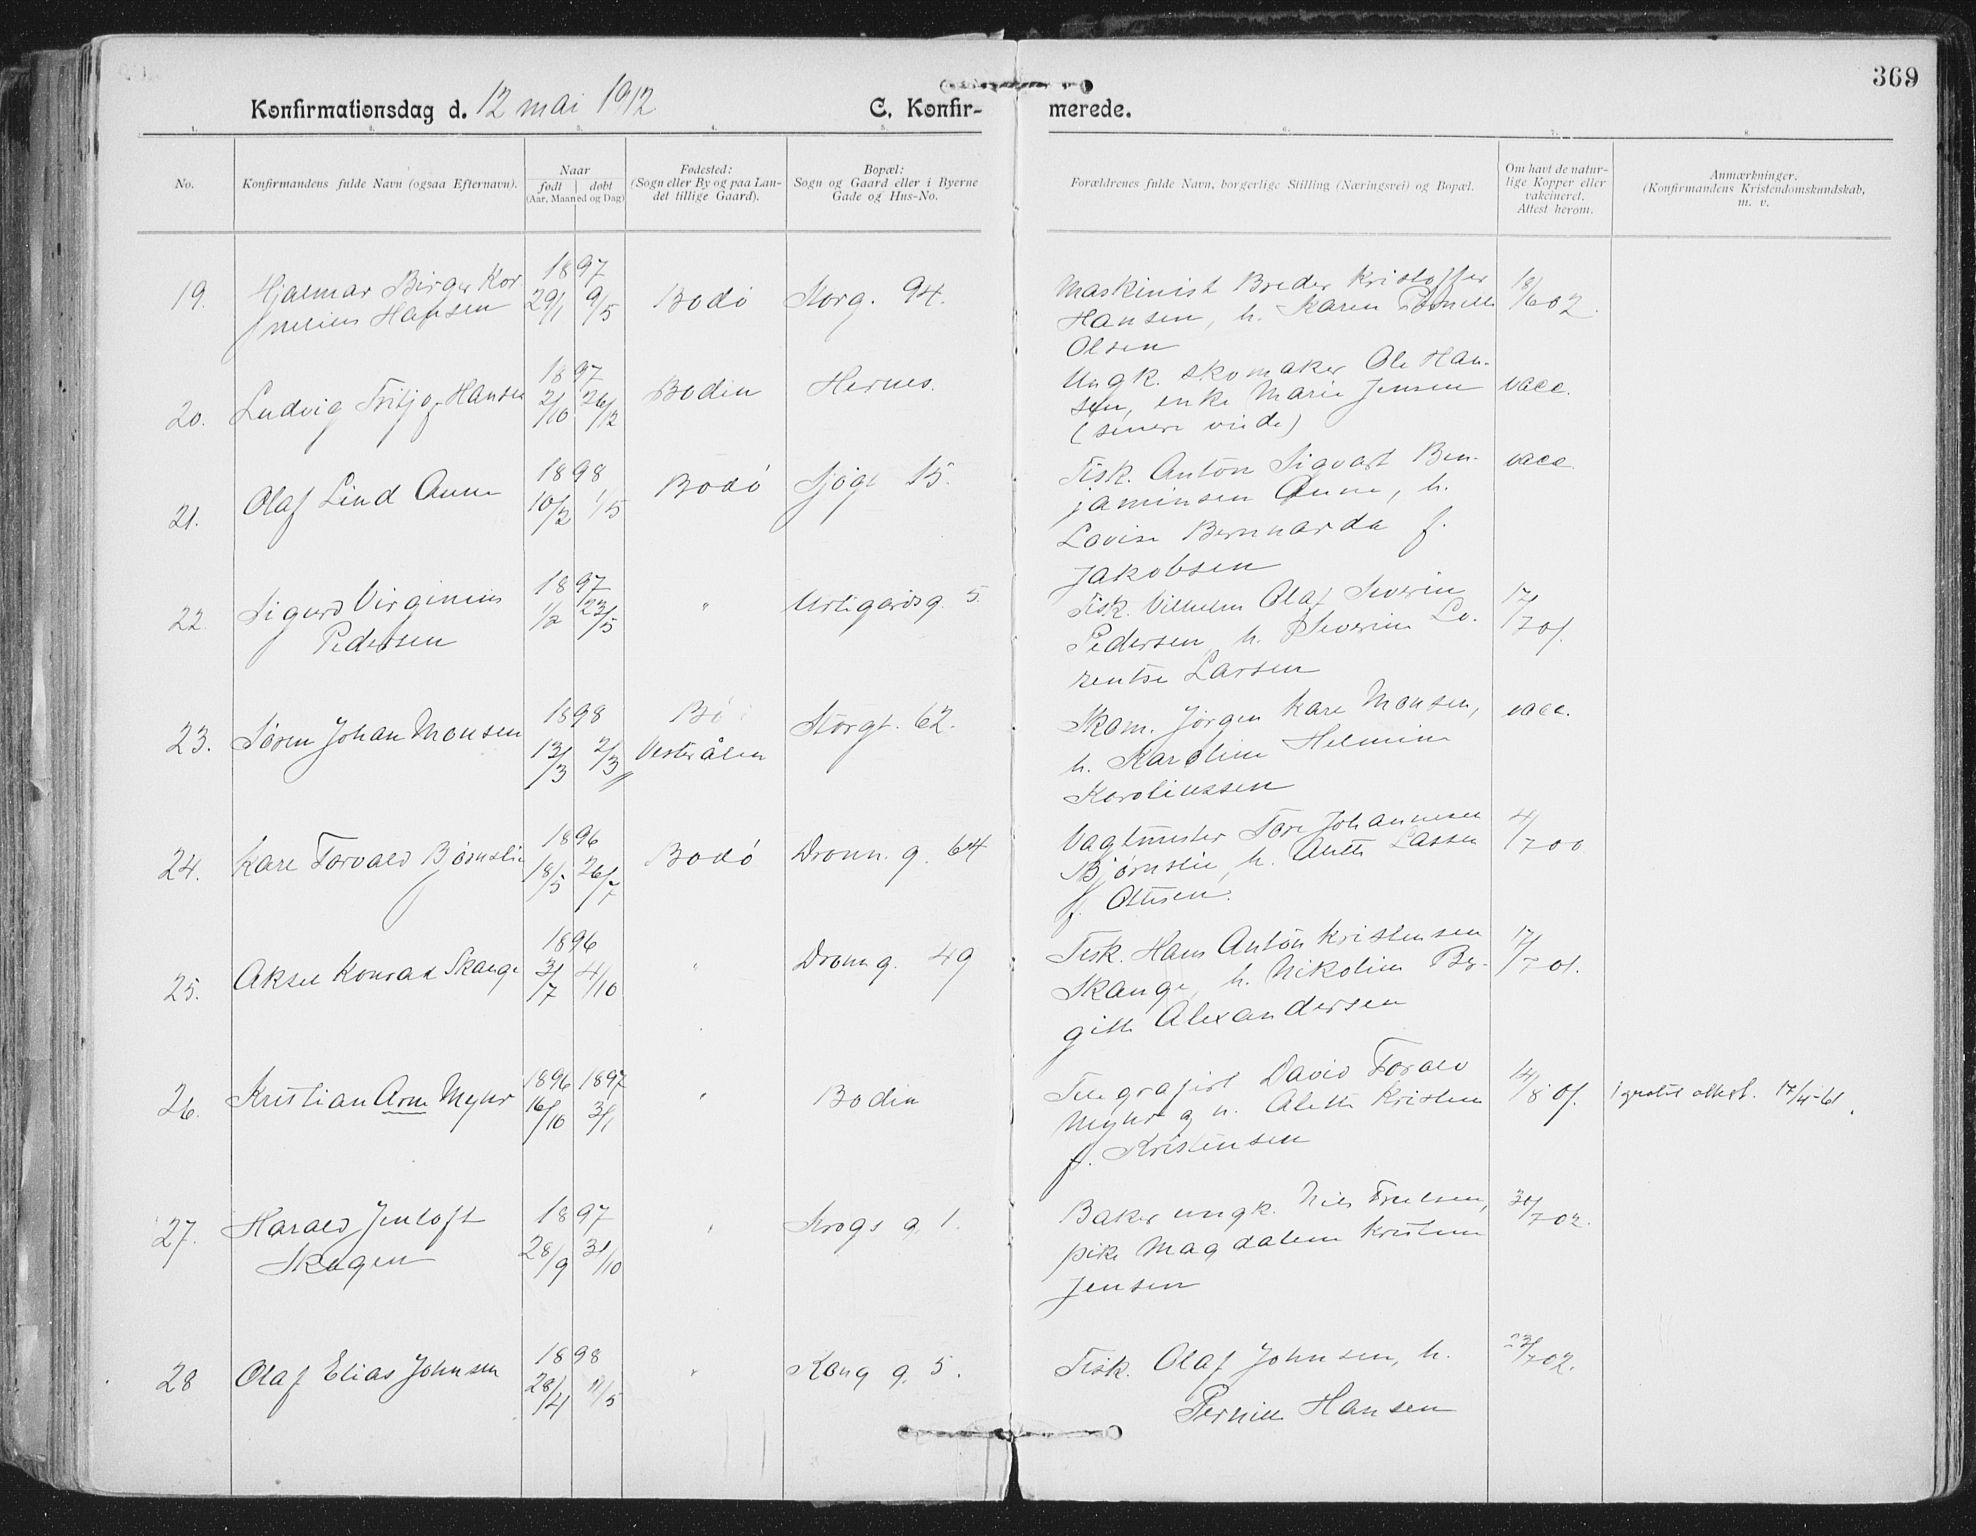 369
Konfirmationsdag d. 12 mai 1912
C. Konfirmerede.
1. 2. 3. 4. 5. 6. 7. 8.
No.
Konfirmandens fulde Navn (ogsaa Efternavn).
Naar
født | døbt
(Aar, Maaned og Dag)
Fødested:
(Sogn eller By og paa Landet tillige Gaard).
Bopæl:
Sogn og Gaard eller i Byerne
Gade og Hus-No.
Forældrenes fulde Navn, borgerlige Stilling (Næringsvei) og Bopæl.
Om havt de naturlige Kopper eller
vakcineret.
Attest herom.
Anmærkninger.
(Konfirmandens Kristendomskundskab,
m. v.
19. Hjalmar Birger Kor
nelius Hansen
1897
29/1 9/5
Bodø
Storg. 94.
Maskinist Breder Kristoffer
Hansen, h. Karen Pernille
Olsen
18/6 02.
20. Ludvig Fritjof Hansen
1897
2/10 26/12
Bodin
Hernes.
Ungk. skomaker Ole Han-
sen, enke Marie Jensen
(senere viede)
vacc.
21. Olaf Lind Aune
1898
10/2 1/5
Bodø
Sjøgt 15.
Fisk. Anton Sigvart Ben-
jaminsen Aune, h.
Lovise Bernharda f.
Jakobsen
vacc.
22. Sigurd Virginius
Pedersen
1897
1/2 23/5
"
Urtigårdsg. 5.
Fisk. Vilhelm Olaf Severin
Pedersen, h. Severine Lo-
rentse Larsen
17/7 01.
23. Søren Johan Monsen
1898
13/3
Bø
Vesterålen
Storgt. 62.
Skom. Jørgen Kare Monsen,
h. Karoline Helmine
Karolinssen
vacc.
24. Kare Torvald Bjørnslie
1896
18/5 26/7
Bodø
Dronn. g. 64
Vagtmester Tore Johannesen
Bjørnslie, h. Alette Lassen
f. Ottesen.
4/7 00
25. Aksel Konrad Skauge
1896
3/7 4/10
"
Dronn g. 49
Fisk. Hans Anton Kristensen
Skauge, h. Nikoline Ber-
gitte Alexandersen
17/7 01.
26. Kristian Arne Myhr
1896 1897
16/10 3/1
"
Bodin
Telegrafist David Torald
Myhr og h. Alette Kristine
f. Kristensen
14/8 01.
1 gratis attest. 17/4-61
27. Harald Jentoft
Skagen
1897
28/9 31/10
"
Krogs g. 1.
Baker ungk. Nils Truelsen,
pike Magdalene Kristine
Jensen
30/7 02.
28 Olaf Elias Johnsen
1898
28/4 11/5
"
Kong g. 5.
Fisk. Olaf Johnsen, h.
Pernille Hansen
23/7 02.